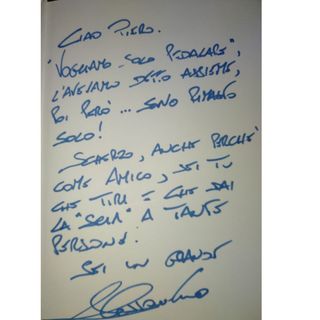 CIAO PIERO.
"VOGLIAMO SOLO PEDALARE",
L'AVEVAMO DETTO ASSIEME,
POI PERÒ... SONO RIMASTO
SOLO!
SCHERZO, ANCHE PERCHÈ
COME AMICO, SEI TU
CHE TIRI E CHE DAI
LA "SCIA" A TANTE
PERSONE.
SEI UN GRANDE